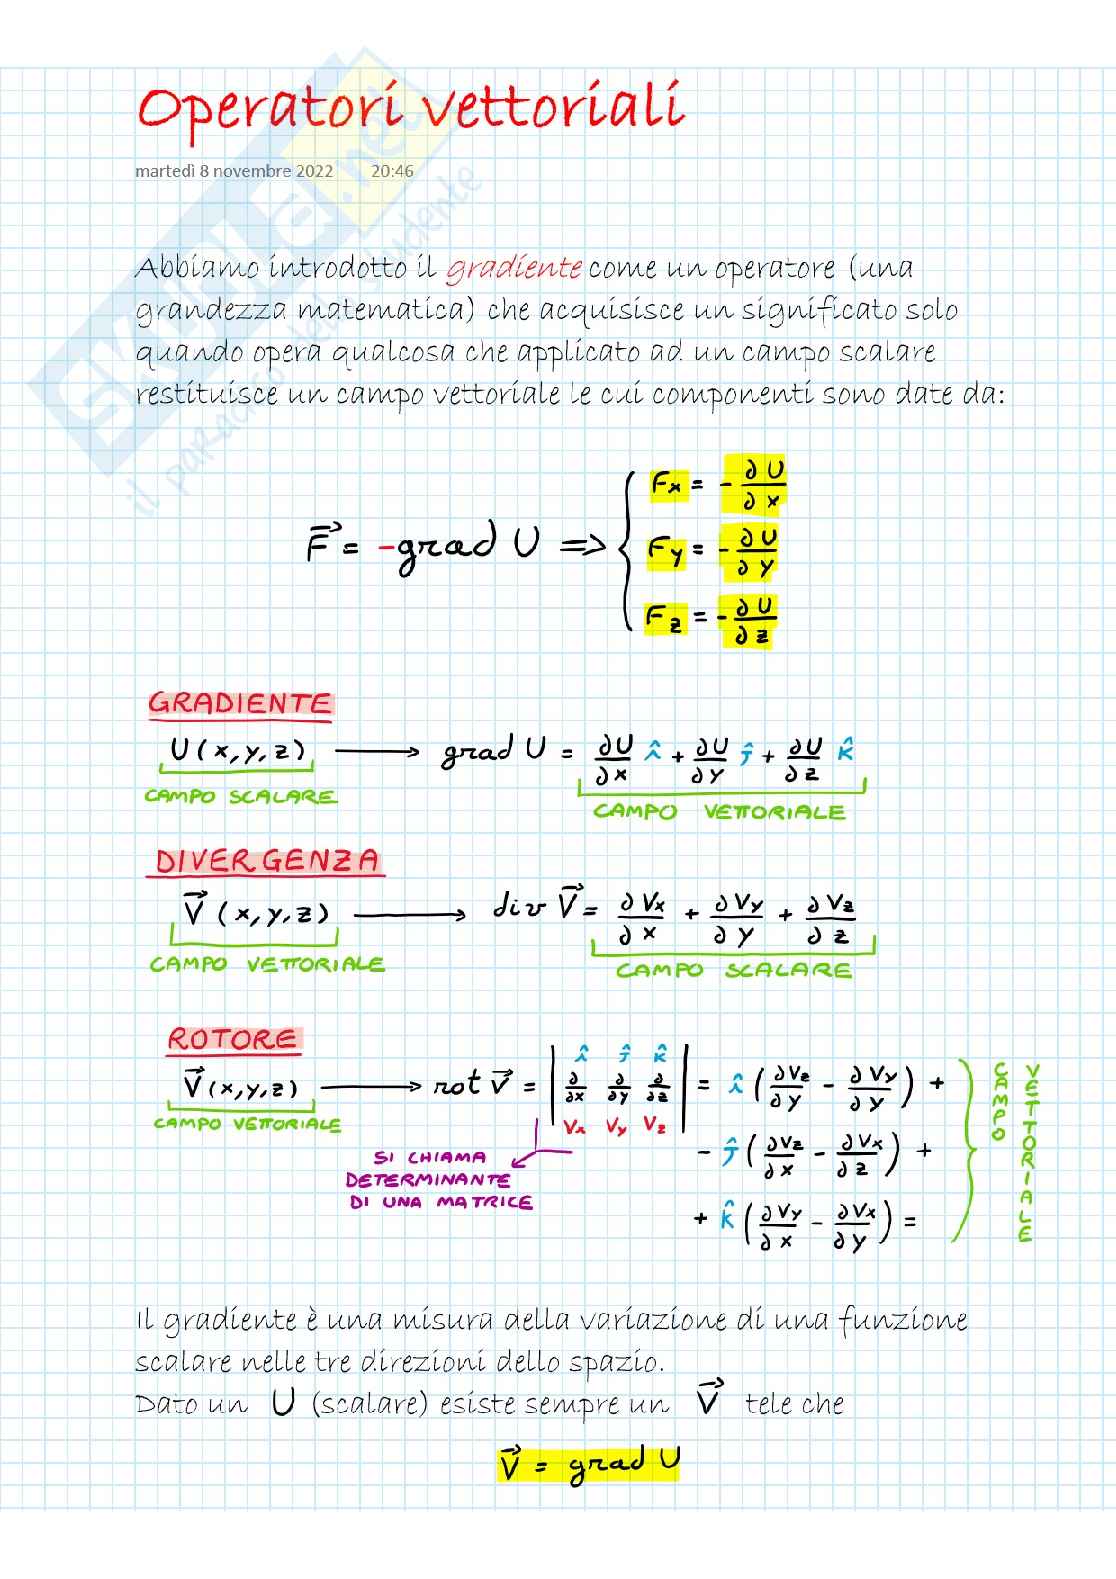 Operatori vettoriali
martedì 8 novembre 2022 20:46
Abbiamo introdotto il gradiente come un operatore (una
grandezza matematica) che acquisisce un significato solo
quando opera qualcosa che applicato ad un campo scalare
restituisce un campo vettoriale le cui componenti sono date da:
F⃗ = -grad U => { Fx = - ∂U/∂x
Fy = - ∂U/∂y
Fz = - ∂U/∂z
GRADIENTE
U(x,y,z) ⟶ grad U = ∂U/∂x î + ∂U/∂y ĵ + ∂U/∂z k̂
CAMPO SCALARE CAMPO VETTORIALE
DIVERGENZA
V⃗ (x,y,z) ⟶ div V⃗ = ∂Vx/∂x + ∂Vy/∂y + ∂Vz/∂z
CAMPO VETTORIALE CAMPO SCALARE
ROTORE
V⃗(x,y,z) ⟶ rot V⃗ = | î ĵ k̂ |
| ∂/∂x ∂/∂y ∂/∂z |
| Vx Vy Vz |
= î (∂Vz/∂y - ∂Vy/∂y) +
- ĵ (∂Vz/∂x - ∂Vx/∂z) +
+ k̂ (∂Vy/∂x - ∂Vx/∂y) =
CAMPO VETTORIALE
CAMPO VETTORIALE
SI CHIAMA
DETERMINANTE
DI UNA MATRICE
Il gradiente è una misura della variazione di una funzione
scalare nelle tre direzioni dello spazio.
Dato un U (scalare) esiste sempre un V⃗ tele che
V⃗ = grad U
SKUOLA.net
il paradiso dello studente